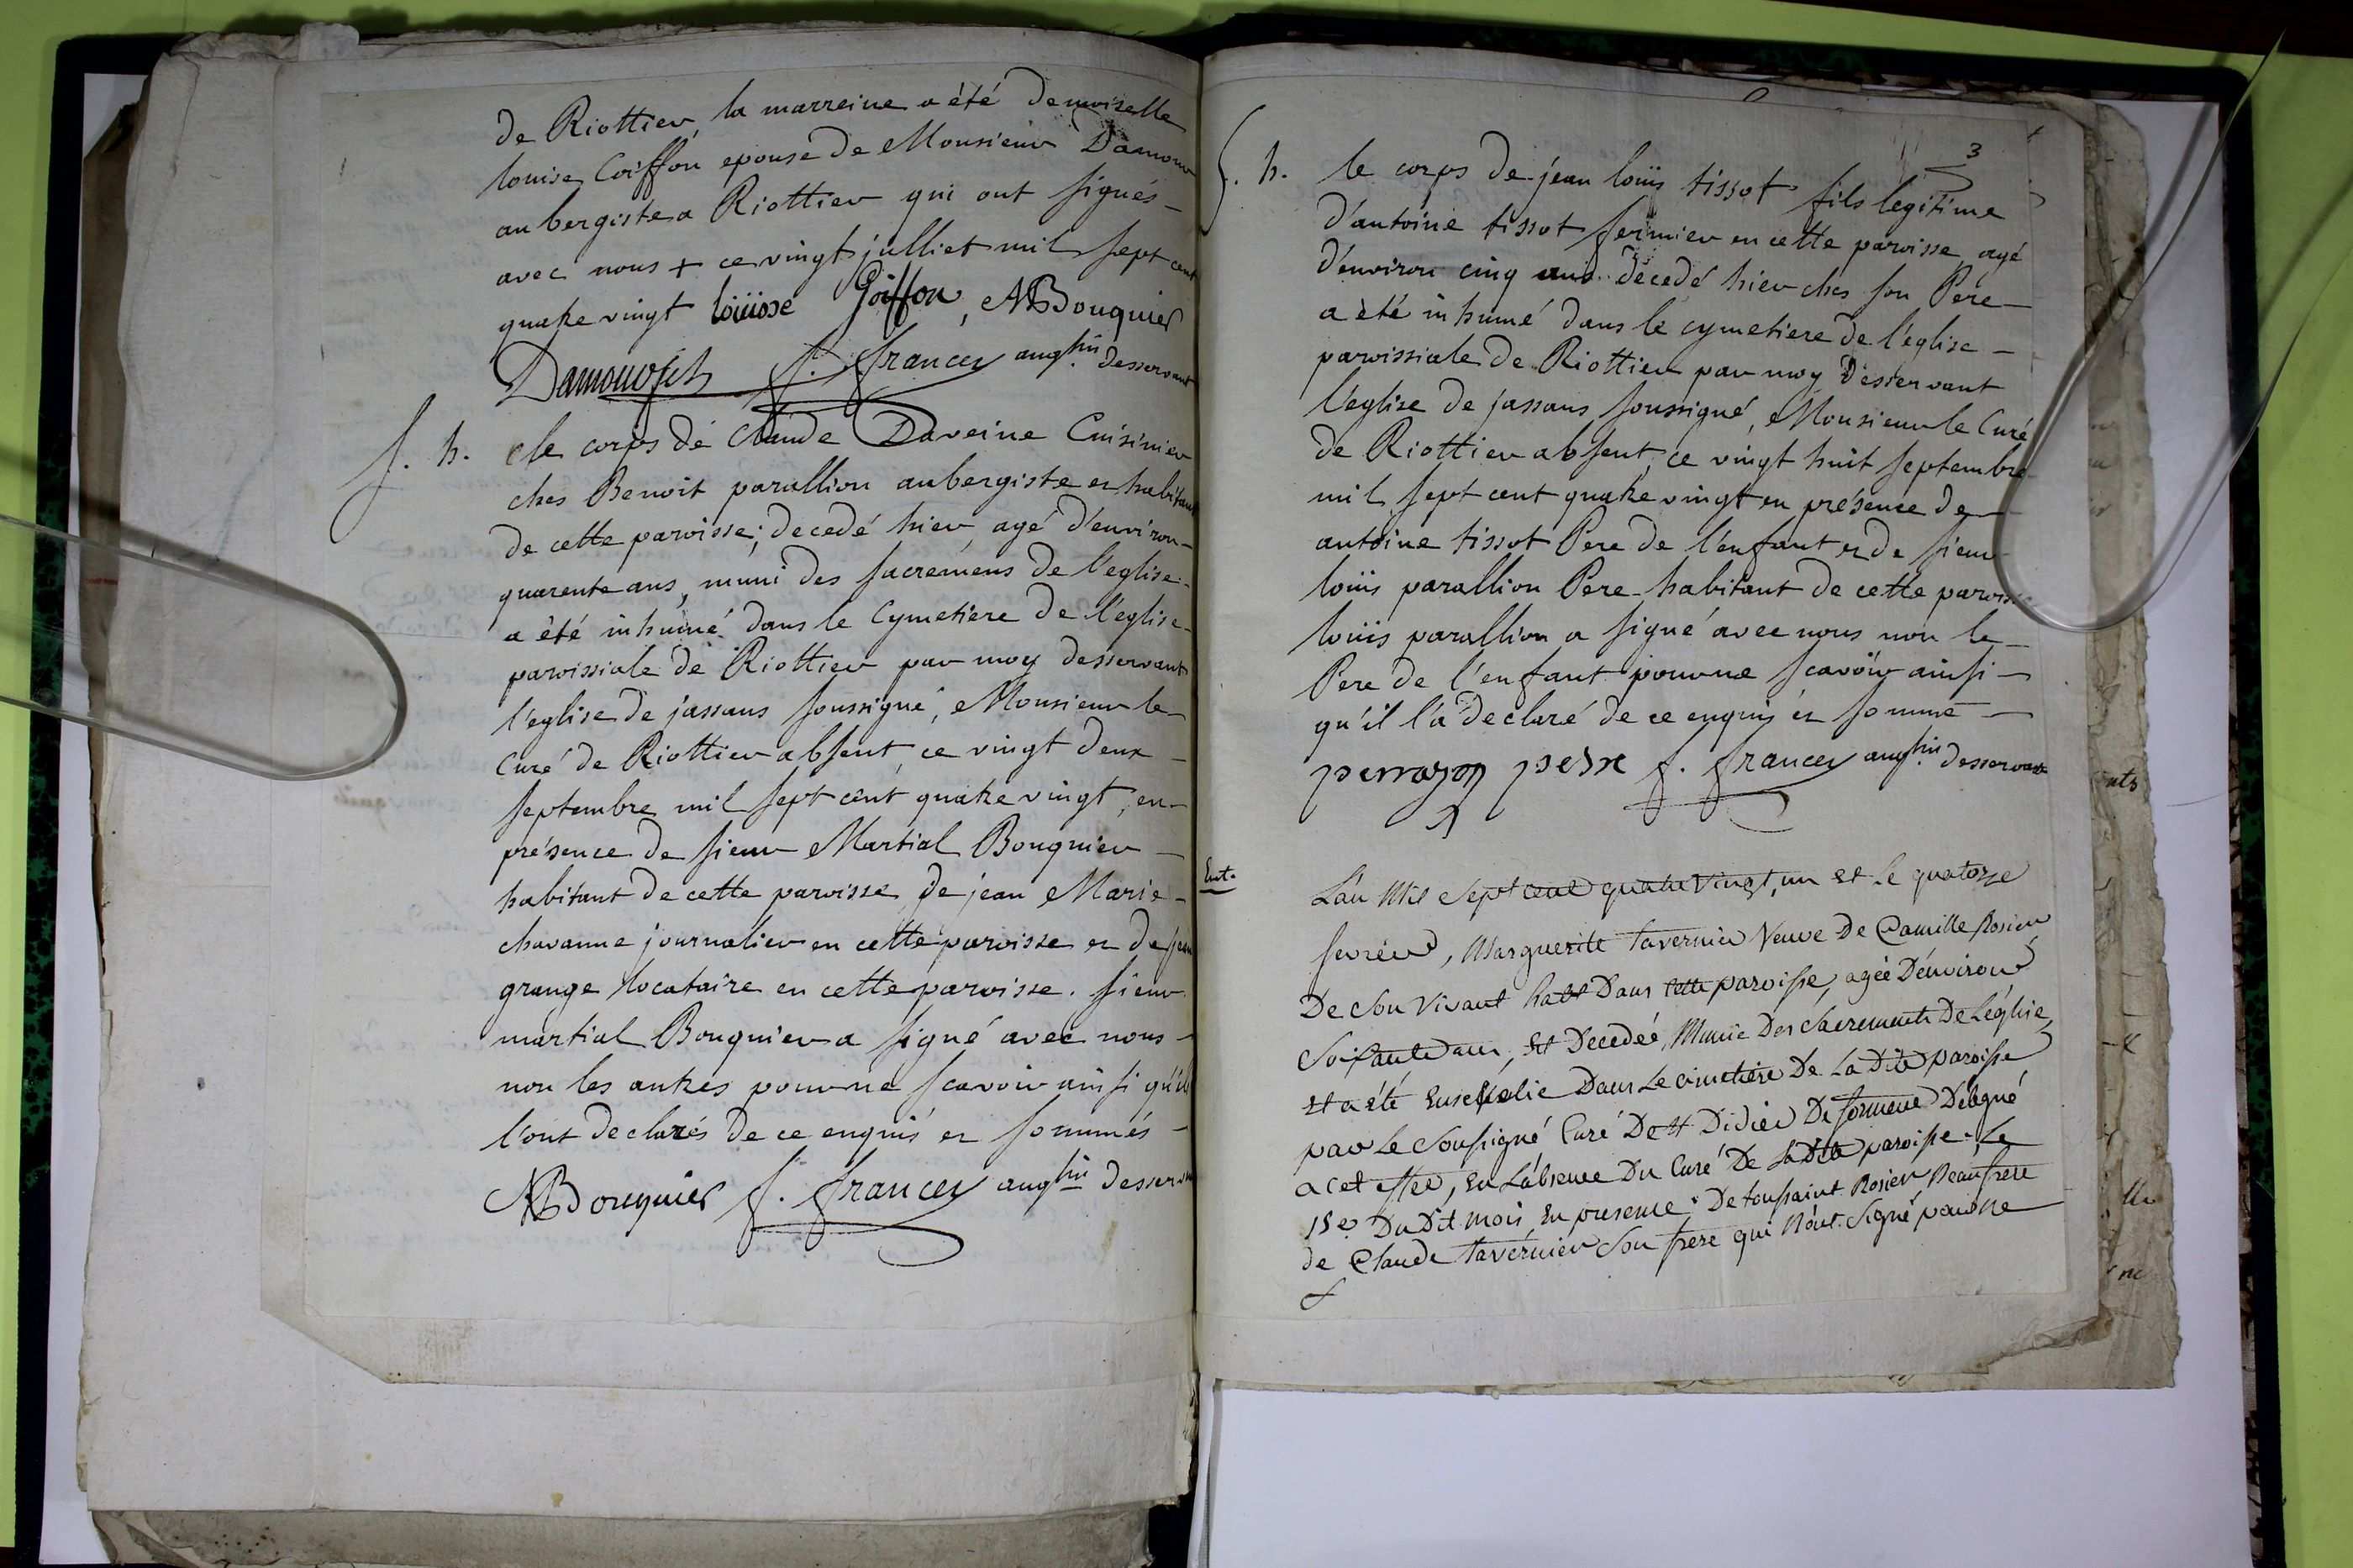 de Riottier, la marreine a été demoiselle
louise Coiffon epouse de Monsieur Damour
aubergiste a Riottier qui ont signés
avec nous + ce vingt julliet mil sept cent
quatre vingt loüise Goiffon, MBouquier
f. francey aug.tin desservant
f. h. le corps de Claude Daveine Cuisinier
ches Benoit parallion aubergiste et habitant
de cette paroisse; decedé hier, agé d'environ
quarente ans, muni des sacremens de l'eglise
a été inhumé dans le Cymetiere de l'église
paroissiale de Riottier par moy desservant
l'eglise de jassans soussigné, Monsieur le
Curé de Riottier absent, ce vingt deux
septembre mil sept cent quatre vingt, en
présence de sieur Martial Bouquier
habitant de cette paroisse, de jean Marie
chavanne journalier en cette paroisse et de jean
grange locataire en cette paroisse. sieur
martial Bouquier a signé avec nous
non les autres pour ne scavoir ainsi qu'ils
l'ont declarés de ce enquis et sommés
MBouquier f. francey aug.tin desservant
3
f. h. le corps de jean loüis tissot fils legitime
d'antoine tissot fermier en cette paroisse, agé
d'environ cinq ans decedé hier ches son Pere
a été inhumé dans le cymetiere de l'église
paroissiale de Riottier par moy desservant
l'eglise de jassans soussigné, Monsieur le Curé
de Riottier absent, ce vingt huit septembre
mil sept cent quatre vingt en présence de
antoine tissot Pere de l'enfant et de sieur
loüis parallion Pere habitant de cette paroisse
loüis parallion a signé avec nous non le
Pere de l'enfant pour ne scavoir ainsi
qu'il l'a declaré de ce enquis et sommé
pere f. francey aug.tin desservant
Ent.
L'an Mil Sept cent quatre vingt, un et le quatorze
fevrier, Marguerite tavernier Veuve De Camille Rosier
De son vivant habt Dans cette paroisse, agée D'environ
Soixante ans, Est Decedée, Munie Des Sacrements De L'église,
et a été Ensevelie Dans Le cimetière De La Dite paroisse
par Le Soussigné Curé De St Didier De formans Délégué
a cet effet, En L'absence Du Curé De La Dite paroisse. Le
15e Du Dit mois, En presence De toussaint Rosier Beaufrere
de Claude tavernier Son frere qui N'ont Signé pour ne